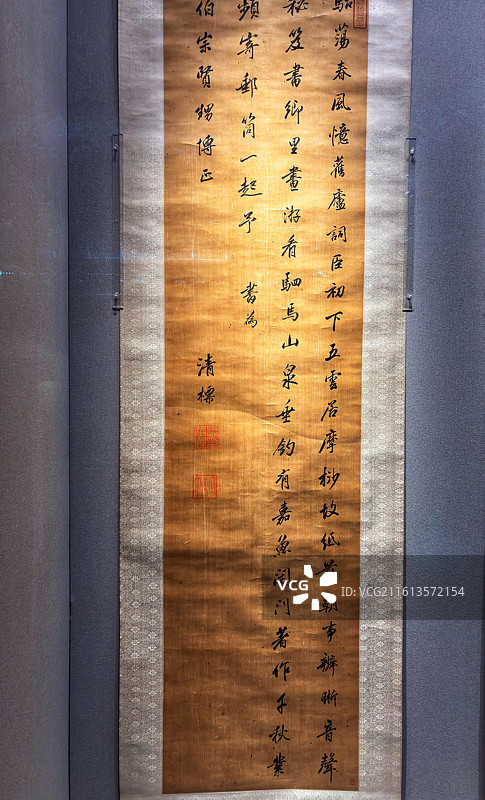 蕩春風憶舊廬詞臣初下五雲居摩挲故紙朝事辨晰音聲
秘笈書鄉里畫游看駟馬山泉垂釣有嘉魚門著作千秋業
頻寄郵筒一起予 書為
伯宗賢甥博正
清標
VCG
ID:VCG211613572154